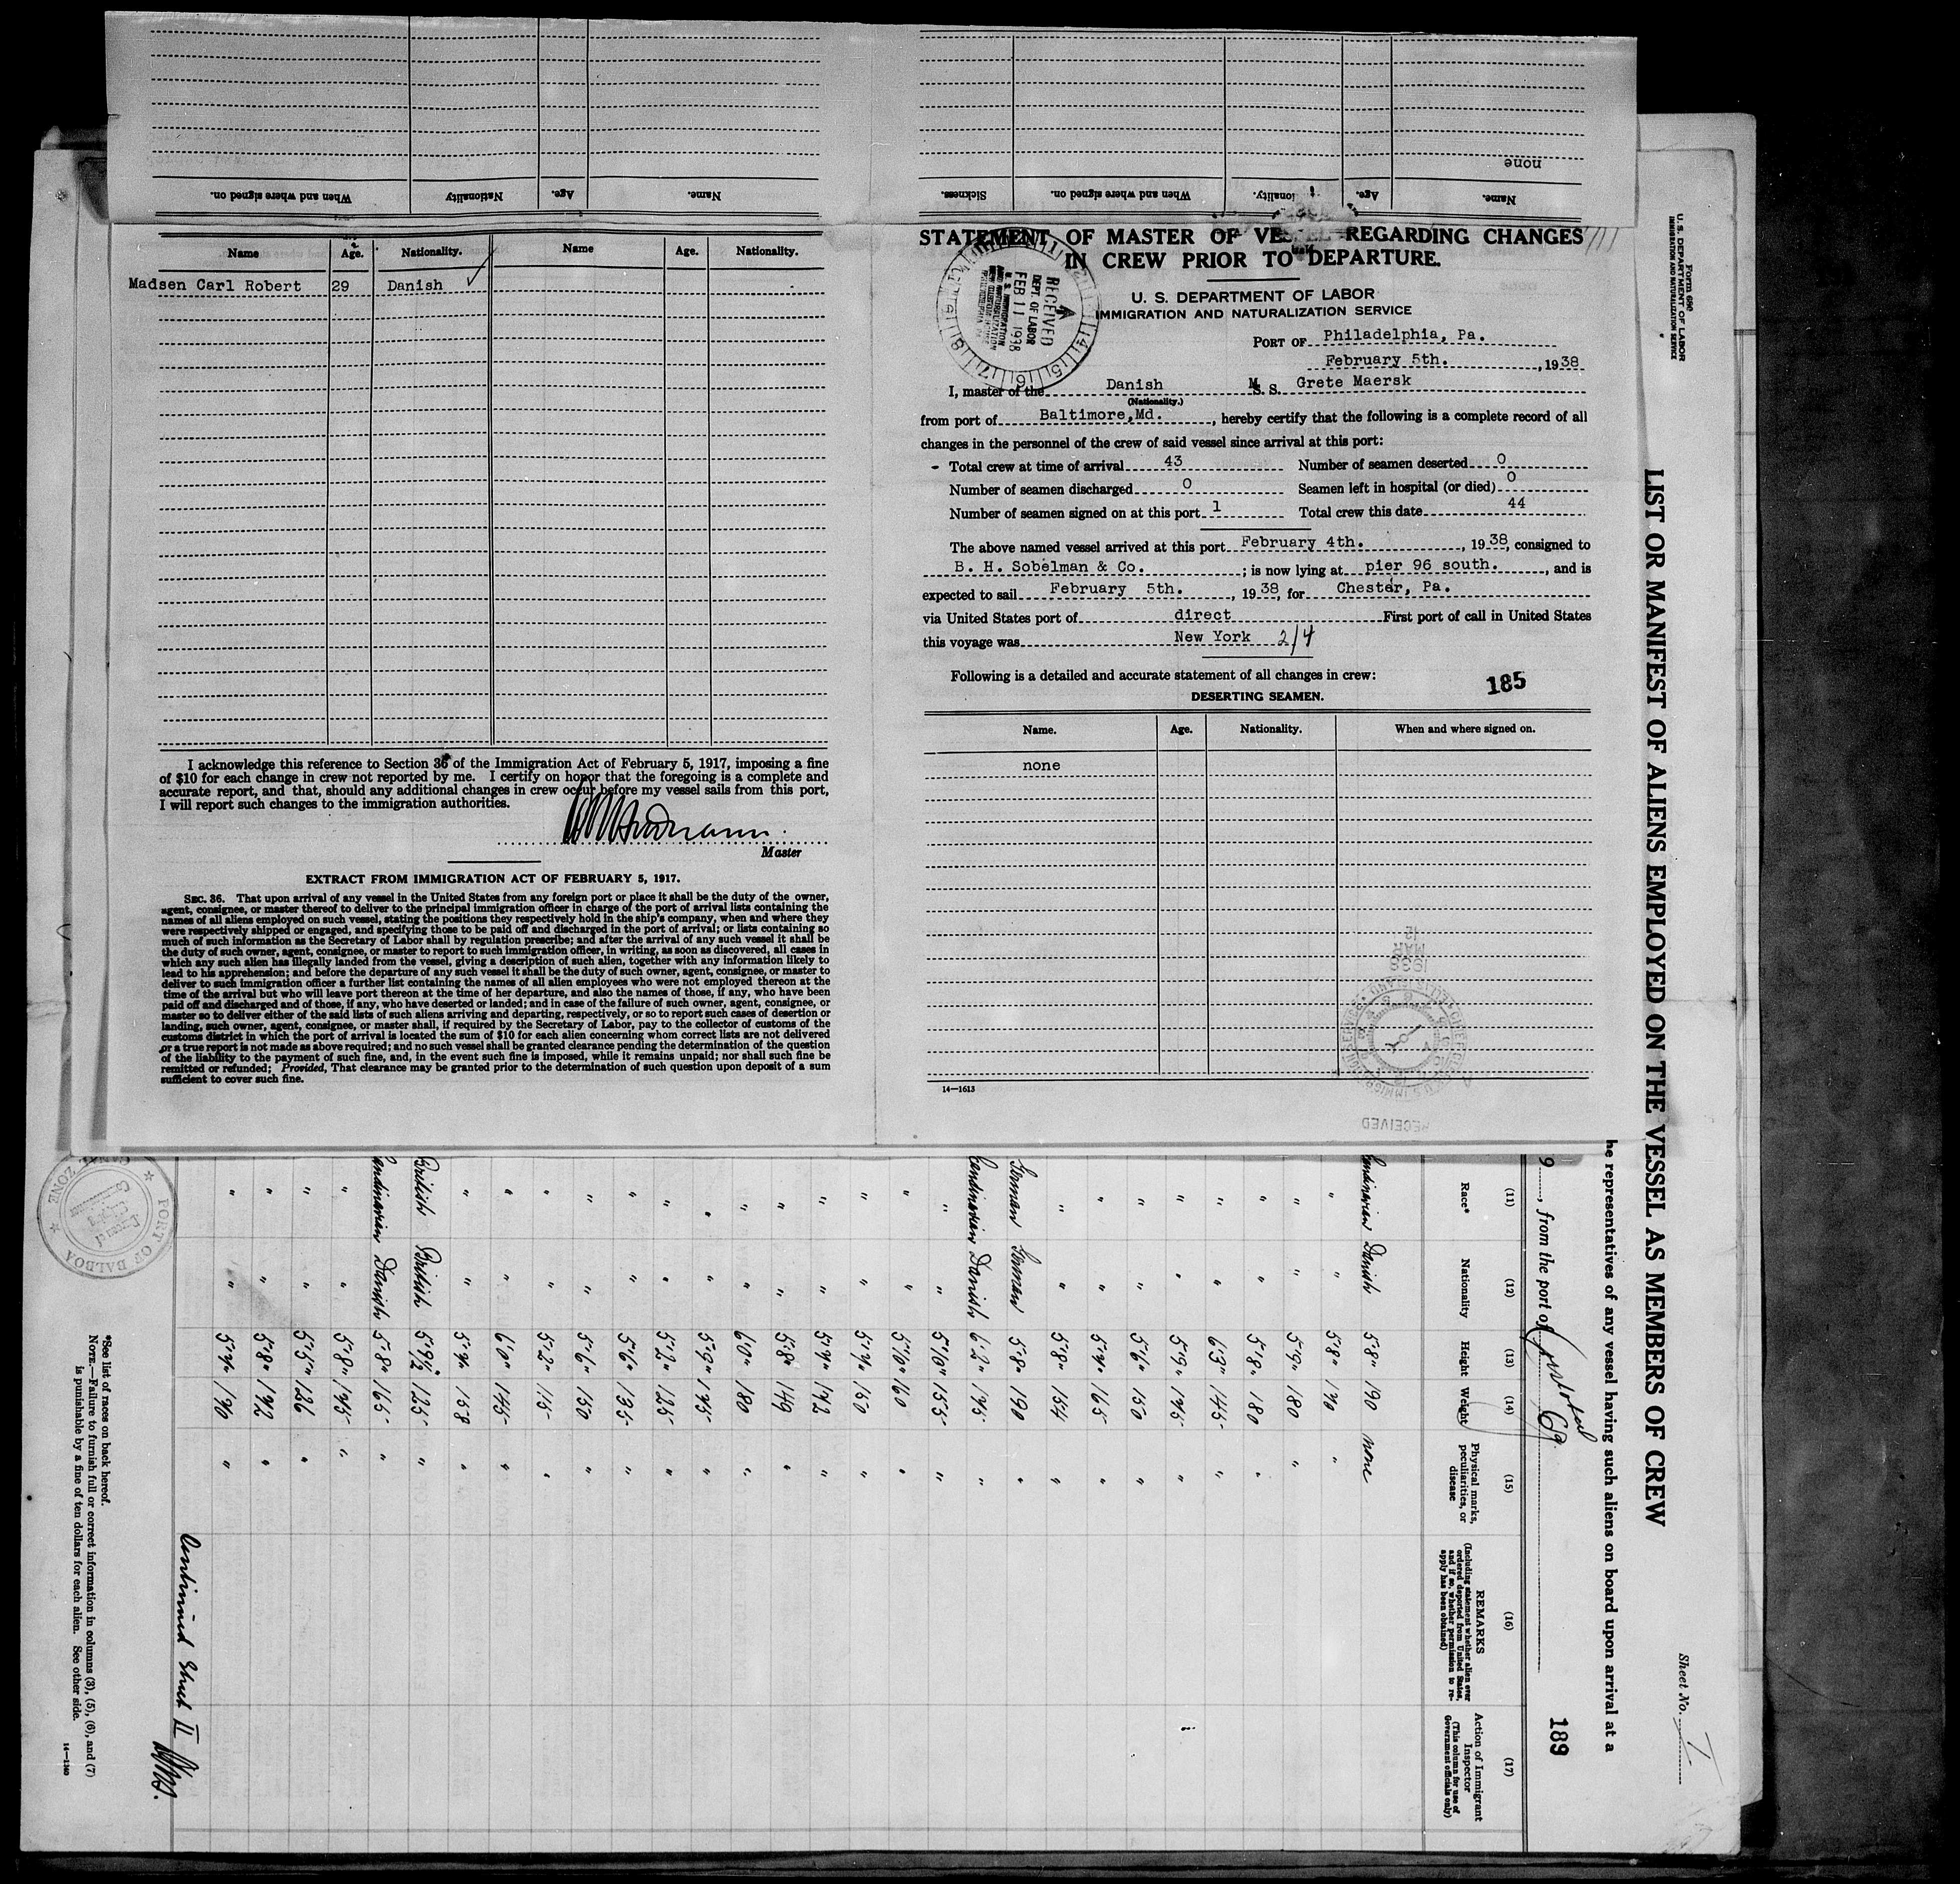 When and where signed on.
Nationality
Age.
Name.
Sickness.
When and where signed on.
Age.
Name.
none
Name
Age.
Nationality.
Name
Age.
Nationality.
Madsen Carl Robert 29 Danish
I acknowledge this reference to Section 36 of the Immigration Act of February 5, 1917, imposing a fine
of $10 for each change in crew not reported by me. I certify on honor that the foregoing is a complete and
accurate report, and that, should any additional changes in crew occur before my vessel sails from this port,
I will report such changes to the immigration authorities.
Master
EXTRACT FROM IMMIGRATION ACT OF FEBRUARY 5, 1917.
SEC. 36. That upon arrival of any vessel in the United States from any foreign port or place it shall be the duty of the owner,
agent, consignee, or master thereof to deliver to the principal immigration officer in charge of the port of arrival lists containing the
names of all aliens employed on such vessel, stating the positions they respectively hold in the ship's company, when and where they
were respectively shipped or engaged, and specifying those to be paid off and discharged in the port of arrival; or lists containing so
much of such information as the Secretary of Labor shall by regulation prescribe; and after the arrival of any such vessel it shall be
the duty of such owner, agent, consignee, or master to report to such immigration officer, in writing, as soon as discovered, all cases in
which any such alien has illegally landed from the vessel, giving a description of such alien, together with any information likely to
lead to his apprehension; and before the departure of any such vessel it shall be the duty of such owner, agent, consignee, or master to
deliver to such immigration officer a further list containing the names of all alien employees who were not employed thereon at the
time of the arrival but who will leave port thereon at the time of her departure, and also the names of those, if any, who have been
paid off and discharged and of those, if any, who have deserted or landed; and in case of the failure of such owner, agent, consignee, or
master so to deliver either of the said lists of such aliens arriving and departing, respectively, or so to report such cases of desertion or
landing, such owner, agent, consignee, or master shall, if required by the Secretary of Labor, pay to the collector of customs of the
customs district in which the port of arrival is located the sum of $10 for each alien concerning whom correct lists are not delivered
or a true report is not made as above required; and no such vessel shall be granted clearance pending the determination of the question
of the liability to the payment of such fine, and, in the event such fine is imposed, while it remains unpaid; nor shall such fine be
remitted or refunded; Provided, That clearance may be granted prior to the determination of such question upon deposit of a sum
sufficient to cover such fine.
STATEMENT OF MASTER OF VESSEL REGARDING CHANGES
IN CREW PRIOR TO DEPARTURE.
U. S. DEPARTMENT OF LABOR
IMMIGRATION AND NATURALIZATION SERVICE
RECEIVED
DEPT. OF LABOR
FEB 11 1938
PORT OF Philadelphia, Pa.
February 5th. , 1938
I, master of the Danish M. S. Grete Maersk
(Nationality.)
from port of Baltimore,Md. , hereby certify that the following is a complete record of all
changes in the personnel of the crew of said vessel since arrival at this port:
Total crew at time of arrival 43 Number of seamen deserted 0
Number of seamen discharged 0 Seamen left in hospital (or died) 0
Number of seamen signed on at this port 1 Total crew this date 44
The above named vessel arrived at this port February 4th. , 1938, consigned to
B. H. Sobelman & Co. ; is now lying at pier 96 south. , and is
expected to sail February 5th. , 1938, for Chester, Pa.
via United States port of direct First port of call in United States
this voyage was New York 2/4
Following is a detailed and accurate statement of all changes in crew:
185
DESERTING SEAMEN.
Name. Age. Nationality. When and where signed on.
none
1938
MAR
12
14—1613
RECEIVED
Form 680
U. S. DEPARTMENT OF LABOR
IMMIGRATION AND NATURALIZATION SERVICE
Sheet No. I
LIST OR MANIFEST OF ALIENS EMPLOYED ON THE VESSEL AS MEMBERS OF CREW
he representatives of any vessel having such aliens on board upon arrival at a
9 , from the port of Cristobal
189
(11) (12) (13) (14) (15) (16) (17)
Race*
Nationality
Height
Weight
Physical marks, peculiarities, or disease
REMARKS
(Including statement whether alien ever
ordered deported from United States,
and if so, whether permission to re-
apply has been obtained)
Action of Immigrant
Inspector
(This column for use of
Government officials only)
andinavian Danish 5'8" 190 none
" " 5'8" 170 "
" " 5'9" 180 "
" " 5'8" 180 "
" " 6'3" 145 "
" " 5'9" 175 "
" " 5'6" 150 "
" " 5'7" 165 "
" " 5'8" 154 "
German German 5'8" 190 "
Scandinavian Danish 6'2" 175 "
" " 5'10" 155 "
" " 5'10" 160 "
" " 5'7" 150 "
" " 5'7" 172 "
" " 5'8" 149 "
" " 6'0" 180 "
" " 5'9" 175 "
" " 5'2" 125 "
" " 5'6" 135 "
" " 5'6" 150 "
" " 5'2" 115 "
" " 6'0" 145 "
" " 5'7" 158 "
British British 5'9½ 125 "
andinavian Danish 5'8" 165 "
" " 5'8" 175 "
" " 5'5" 126 "
" " 5'8" 172 "
" " 5'7" 170 "
Continued Sheet II
*See list of races on back hereof.
NOTE.—Failure to furnish full or correct information in columns (3), (5), (6), and (7)
is punishable by a fine of ten dollars for each alien. See other side.
14—1240
PORT OF BALBOA
CANAL ZONE